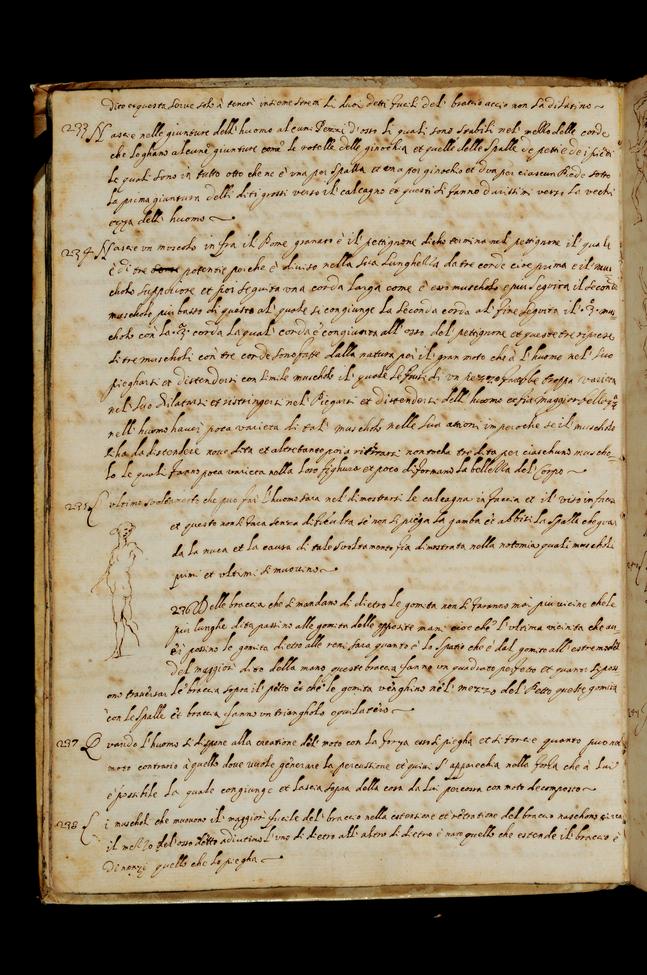 dico questa serve solo à tenere insieme stretti li duoi detti fucili del braccio accio non si dilatino~
233 Nasce nelle giunture dell'huomo alcuni Pezzi d'osso li quali sono stabili nel mezzo delle corde
che leghano alcune giunture come le rotelle delle ginochia et quelle delle spalle de petti e de i piedi
le quali sono in tutto otto che ne è una per spalla et una per ginochio et dua per ciascun Piede sotto
la prima giuntura delli diti grossi verso il calcagno et questi si fanno durissimi verso la vechi
ezza dell' huomo~
234 Nasce un muscolo infra il Pome granato è il pettignone dicho termina nel pettignone il quale
è di tre potentie perche è diviso nella sua Lunghezza da tre corde cioè prima è il mu
scholo superiore et poi seguita una corda larga come è esso muscholo e poi seguita il secondo
muscholo piu basso di questo al quale si congiunge la seconda corda al fine seguita il 3º mu
scholo con la 3ª corda la qual corda è congiunta all' osso del pettignone et queste tre riprese
di tre muscholi con tre corde sono fatte dalla natura per il gran moto che à l'huomo nel suo
piegharsi et distendersi con simile muscholo il quale se fussi di un pezzo farebbe troppa varieta
nel suo dilatarsi et ristringersi nel Piegarsi et distendersi dell' huomo et fia maggior bellezza
nell' huomo haver poca varieta di tal muscholo nelle sua ationi imperoche se il muscholo
si ha da distendere nove dita et altretanto poi a ritirarsi non tocha tre dita per ciaschuno muscho-
lo le quali fanno poca varieta nella loro fighura et poco diformano la bellezza del corpo~
235 L ultimo svoltamento che puo far l'huomo sara nel dimostrarsi le calcagna in faccia et il viso in faccia
et questo non si fara senza dificulta se non si piega la gamba et abbassi la spalla che guar
da la nuca et la causa di tale svoltamento fia dimostrata nella notomia quali muscholi
primi et ultimi si muovino~
236 Delle braccia che si mandano di dietro le gomita non si faranno mai piu vicine che le
piu lunghe dita passino alle gomita delle opposite mani cioè che l'ultima vicinita che aver
si possino le gomita dietro alle reni sara quanto è lo spatio che è dal gomito all' estremo
del maggior dito della mano queste braccia fanno un quadrato perfetto et quanto si poss
ono traversar le braccia sopra il petto et che le gomita venghino nel mezzo del Petto queste gomita
con le spalle et braccia fanno un triangholo equilatero~
237 Quando l'huomo si dispone alla creatione del moto con la forza esso si piegha et si torce quanto puo nel
moto contrario à quello dove vuole generare la percussione et quivi s' apparecchia nella forza che à lui
è possibile la quale congiunge et lascia sopra della cosa da lui percossa con moto decomposto~
238 Li muscholi che muovono il maggior fucile del braccio nella estensione et retratione del braccio naschono circa
il mezzo del osso detto adiutorio l'uno di dietro all' altro di dietro è nato quello che estende il braccio è
dinanzi quello che lo piegha~